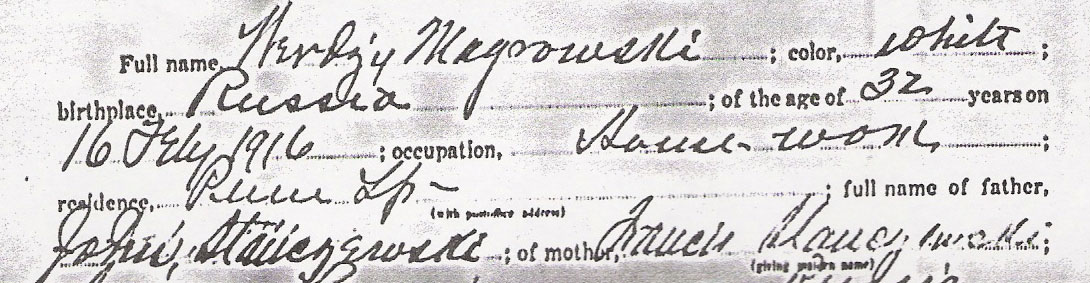 Full name, Werdzy Magrowski ; color, White ;
birthplace, Russia ; of the age of 32 years on
16 Feby 1916 ; occupation, House-work ;
residence, Penn Tp- ; full name of father,
(with post-office address)
John, Stanczewski ; of mother, Francis
(giving maiden name)